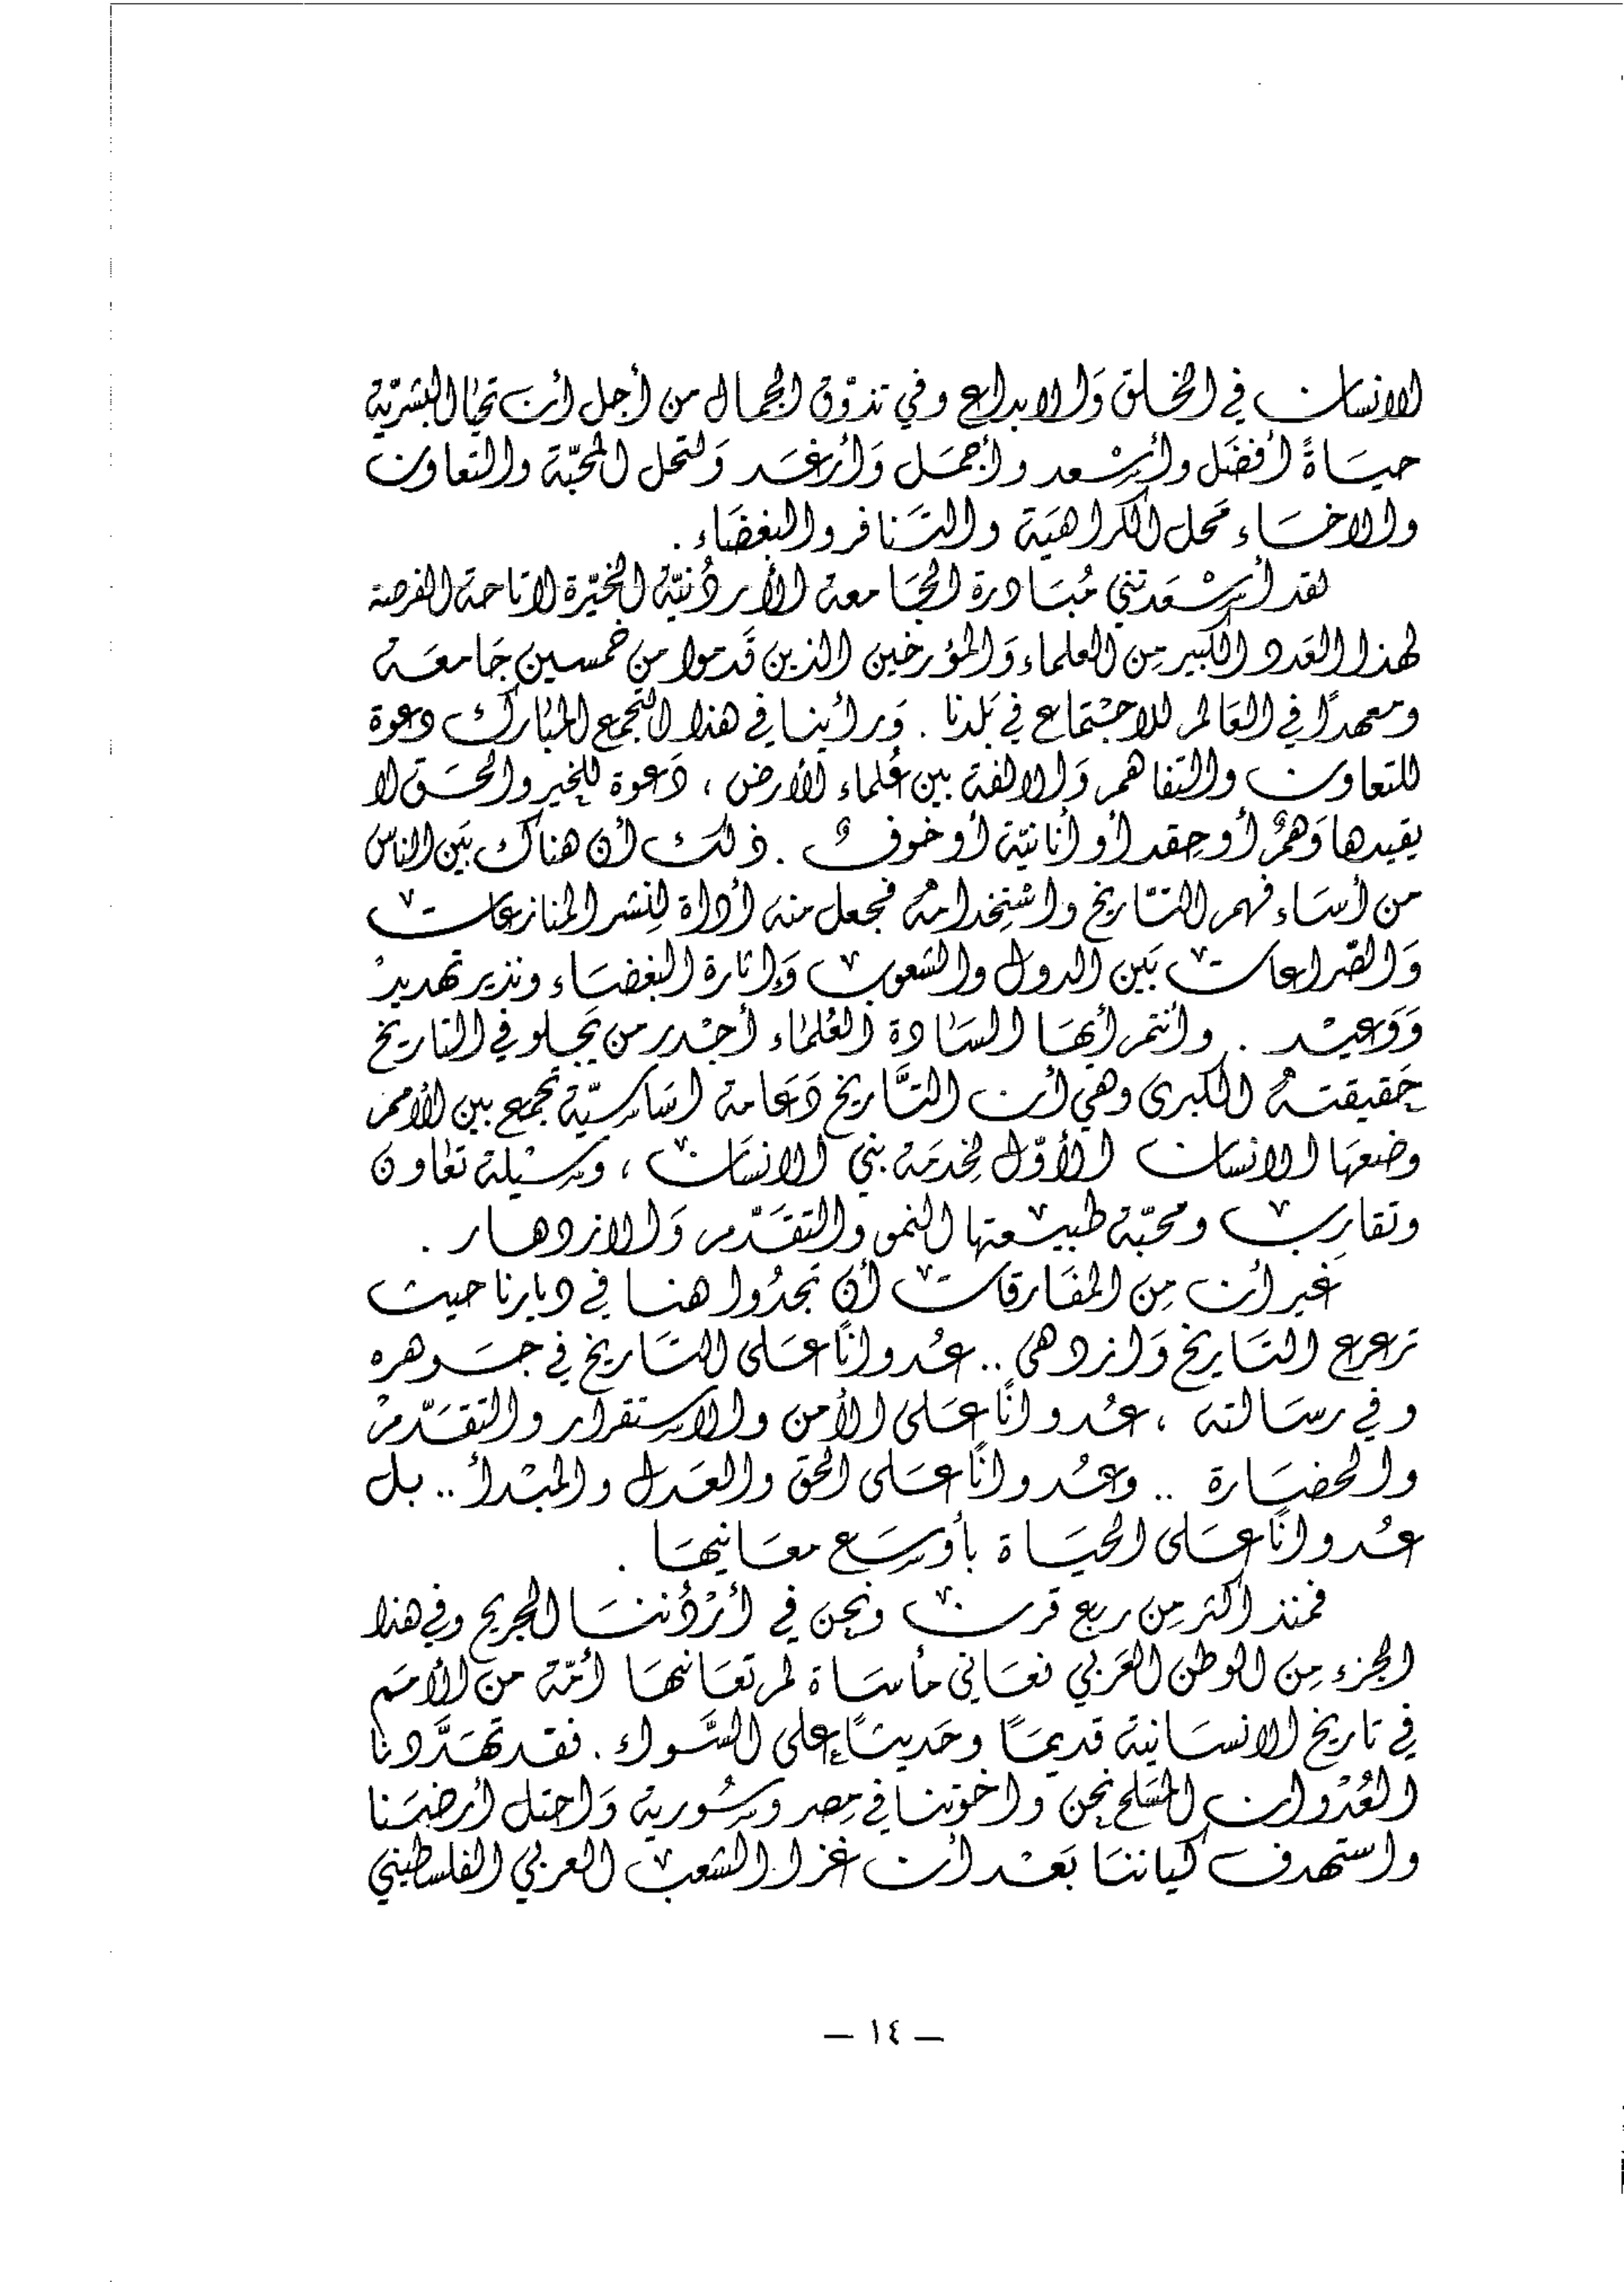 الانسان في الخلق وَالابداع وفي تذوّق الجمال من أجل أن تحيا البشريّة
حيَاةً أفضَل وأسْعد وأجمَل وَأرغَد وَلتحل المحبّة والتعاون
والاخَاء مَحل الكراهيَة والتَنافر والبغضَاء .
لقد أسْعَدتني مُبَادرة الجَامعة الأردُنيّة الخيّرة لاتاحة الفرصة
لهذا العَدد الكبير مِن العلماء وَالمؤرخين الذين قَدموا من خمسين جَامعَة
ومعهدًا في العَالم للاجْتماع في بَلدنا . وَرأينا في هذا التجمع المبَارك دعوة
للتعاون والتفاهم وَالالفة بين عُلماء الأرض ، دَعوة للخير والحَق لا
يقيدها وَهمٌ أو حِقد أو أنانيّة أو خوفٌ . ذلك أن هناك بَين الناس
من أسَاء فهم التّاريخ واسْتِخدامهُ فجعل منه أداة لِنشر المنازعات
وَالصّراعات بَين الدول والشعوب وَإثارة البغضَاء ونذير تهديدْ
وَوَعيْد . وأنتم أيهَا السَادة العُلمَاء أجْدر من يَجلو في التاريخ
حَقيقتهُ الكبرى وهي أن التَّاريخ دَعَامة اسَاسيّة تجمع بين الأمم
وضعَها الانسان الأوّل لِخدمَة بني الانسَان ، وسْيلة تعَاون
وتقارِب ومحبّة طبيعتها النمو والتقَدّم وَالازدهار .
غَير أن مِن المفَارقات أن تجدُوا هنا في ديارنا حيث
ترعرع التَاريخ وَازدهى .. عدُوانًا عَلى التَاريخ في جَوهره
وفي رسَالته ، عدُوانًا عَلى الأمن والاستقرار والتقَدّمْ
والحضَارة .. وعدُوانًا عَلى الحق والعَدل والمبْدأ .. بل
عدُوانًا عَلى الحيَاة بأوسَع معَانيهَا .
فمنذ أكثر مِن ربع قرن ونحن في أرْدُننَا الجريح وفي هذا
الجزء مِن الوطن العَربي نعَاني مأسَاة لم تعَانهَا أمّة من الأمَم
في تاريخ الانسَانية قديمًا وحَديثًا على السَّواء . فقد تهَدَّدنا
العُدْوان المسَلح نحن واخوتنا في مِصر وسُورية وَاحتل أرضنَا
واستهدف كياننَا بَعْد أن غزا الشعب العربي الفلسطيني
— ١٤ —